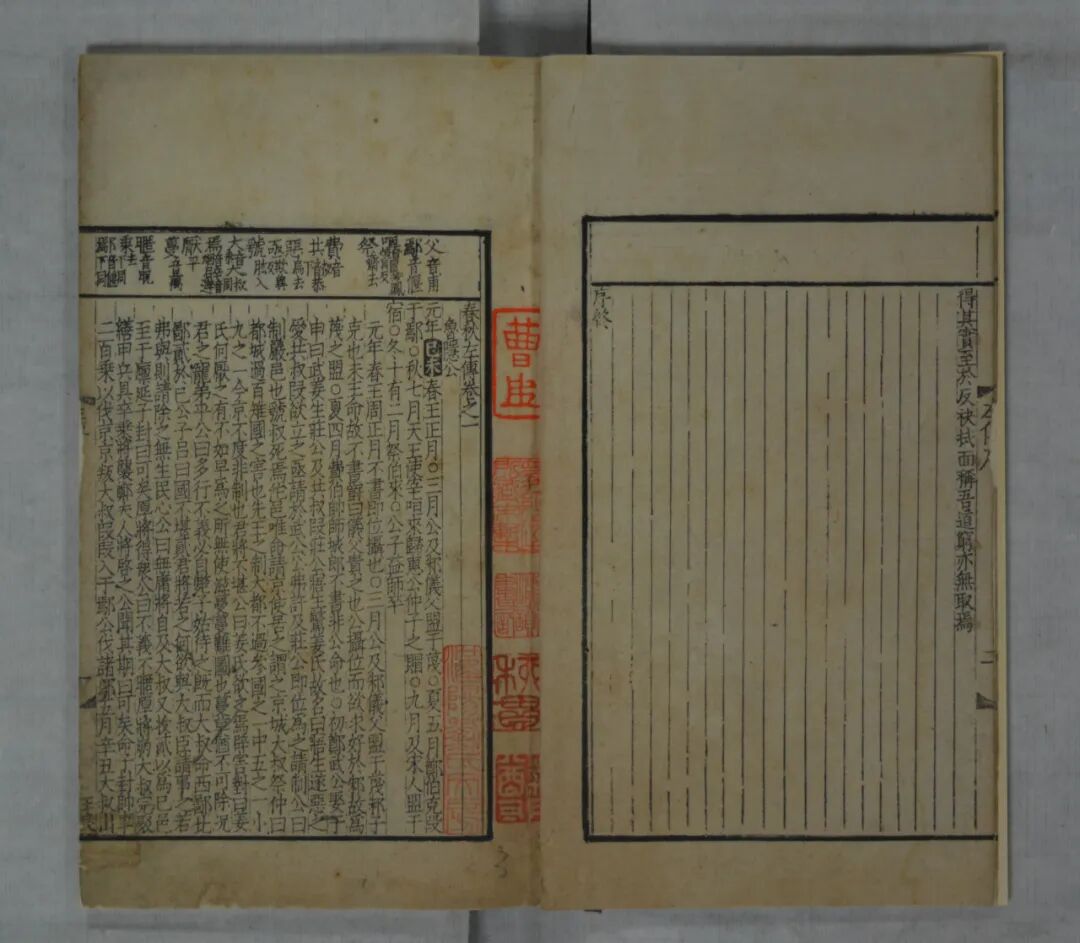 得其實至於反袂拭面稱吾道窮亦無取焉
序終
父音甫
鄢音偃
費音
共音恭
惡烏去
厭平
暱音昵
春秋左傳卷之一
魯隱公
元年己未春王正月○三月公及邾儀父盟于蔑○夏五月鄭伯克段
于鄢○秋七月天王使宰咺來歸惠公仲子之賵○九月及宋人盟于
宿○冬十有二月祭伯來○公子益師卒
元年春王周正月不書即位攝也○三月公及邾儀父盟于蔑邾子
克也未王命故不書爵曰儀父貴之也公攝位而欲求好於邾故為
蔑之盟○夏四月費伯帥師城郎不書非公命也○初鄭武公娶于
申曰武姜生莊公及共叔段莊公寤生驚姜氏故名曰寤生遂惡之
愛共叔段欲立之亟請於武公公弗許及莊公即位為之請制公曰
制巖邑也虢叔死焉佗邑唯命請京使居之謂之京城大叔祭仲曰
都城過百雉國之害也先王之制大都不過參國之一中五之一小
九之一今京不度非制也君將不堪公曰姜氏欲之焉辟害對曰姜
氏何厭之有不如早為之所無使滋蔓蔓難圖也蔓草猶不可除況
君之寵弟乎公曰多行不義必自斃子姑待之既而大叔命西鄙北
鄙貳於己公子呂曰國不堪貳君將若之何欲與大叔臣請事之若
弗與則請除之無生民心公曰無庸將自及大叔又收貳以為己邑
至于廩延子封曰可矣厚將得衆公曰不義不暱厚將崩大叔完聚
繕甲兵具卒乘將襲鄭夫人將啓之公聞其期曰可矣命子封帥車
二百乘以伐京京叛大叔段段入于鄢公伐諸鄢五月辛丑大叔出
曹
3